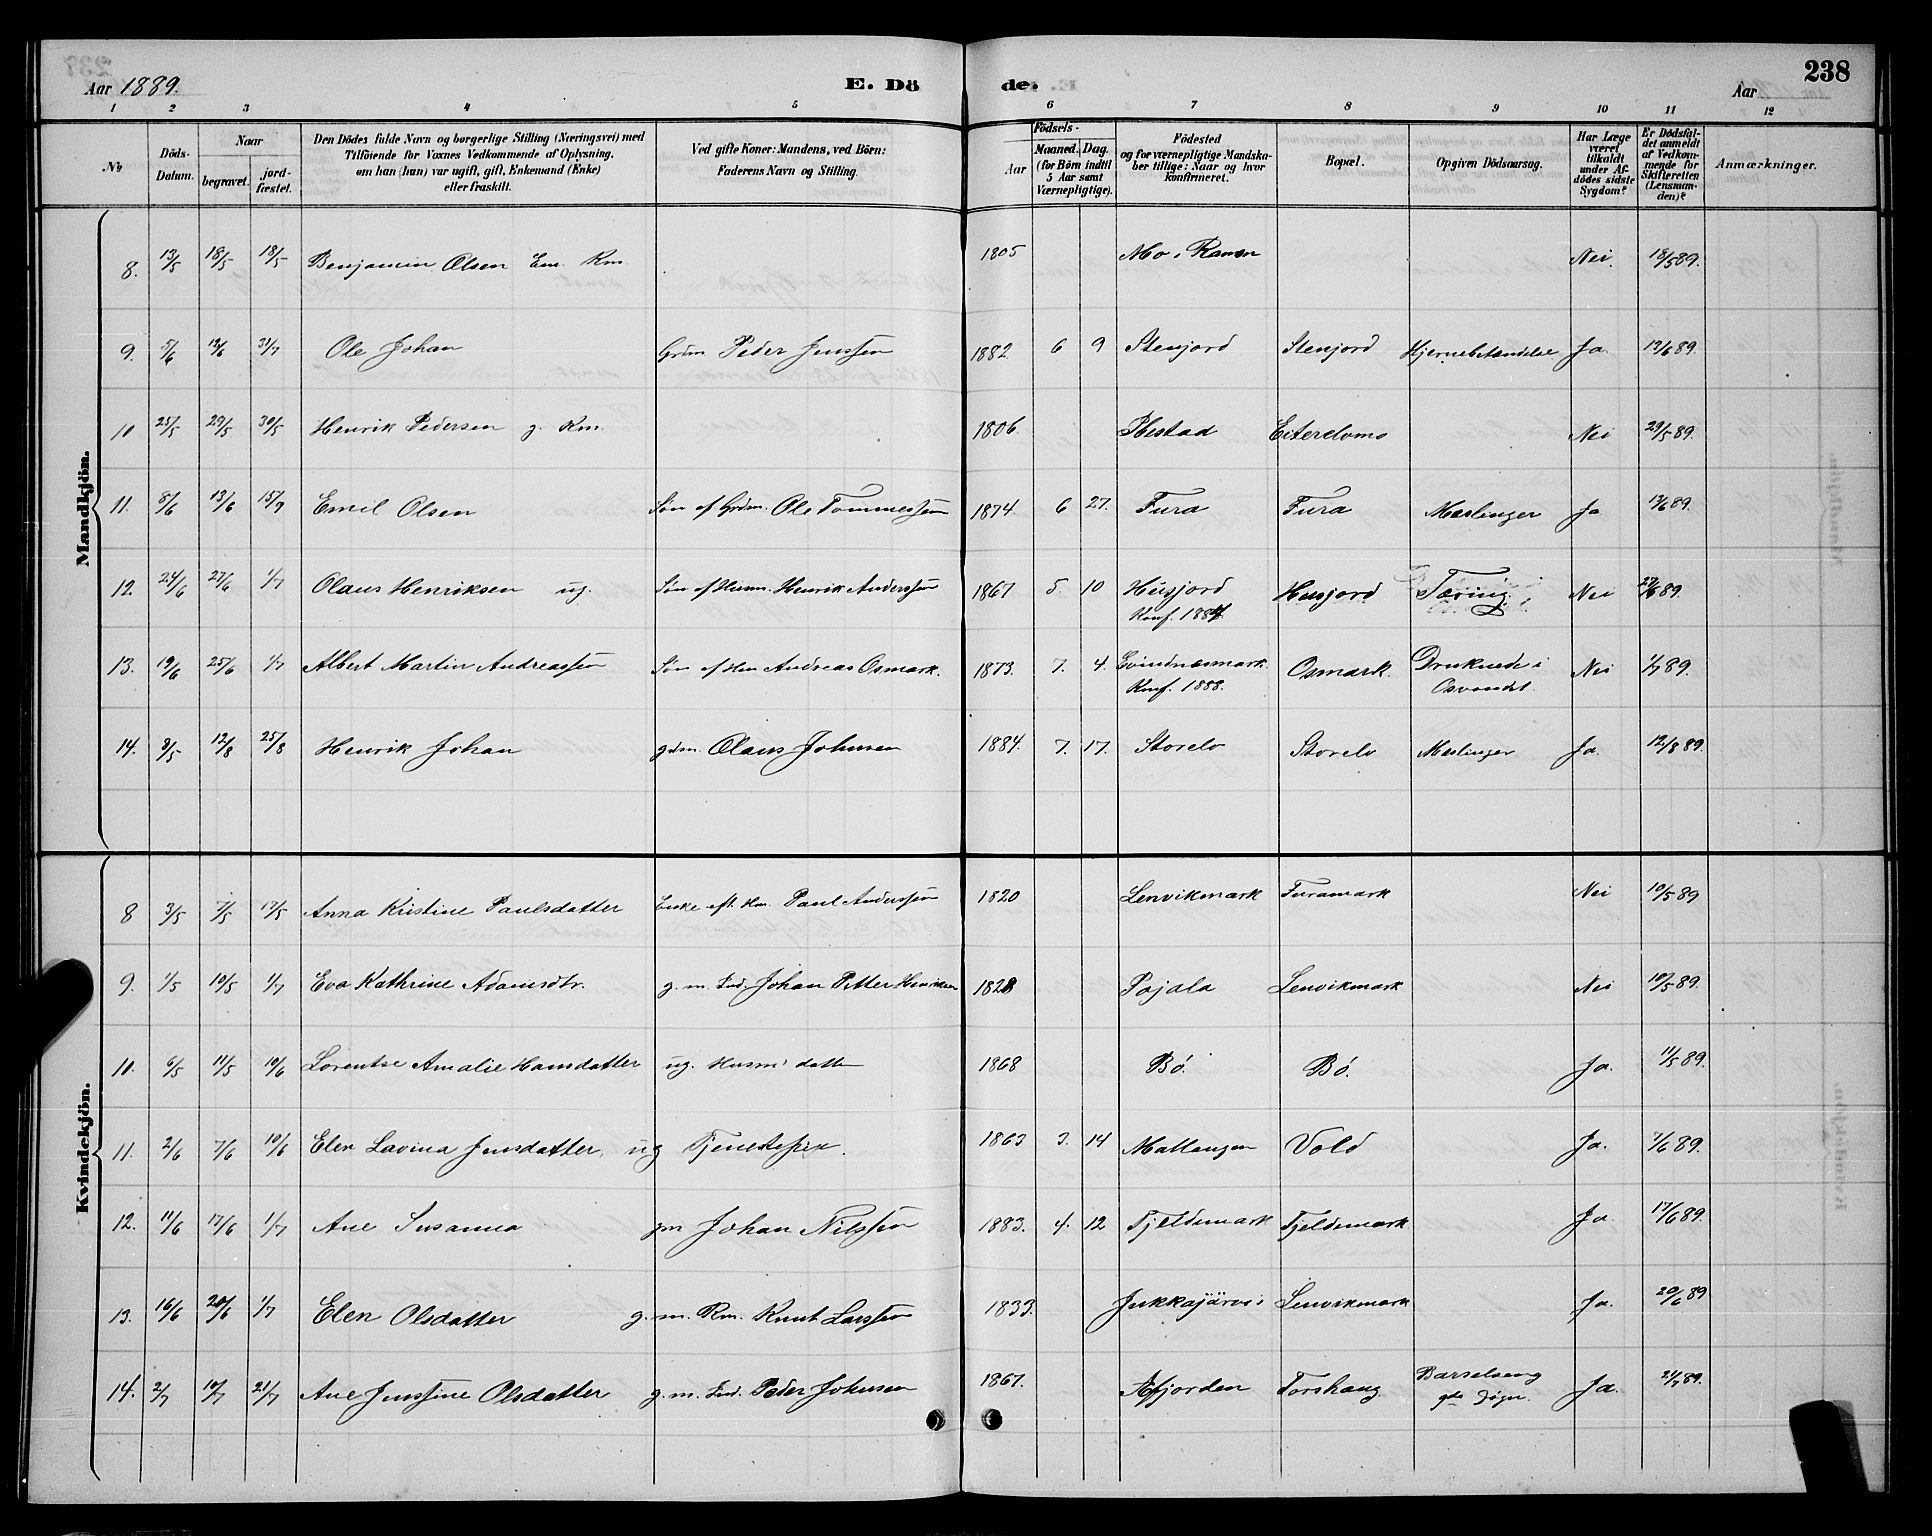 238
Aar 1889.
E. Dö de.
Aar
1 2 3 4 5 6 7 8 9 10 11 12
No
Döds-Datum.
Naar
begravet.
jord-fæstet.
Den Dödes fulde Navn og borgerlige Stilling (Næringsvei) med
Tilföiende for Voxnes Vedkommende af Oplysning,
om han (hun) var ugift, gift, Enkemand (Enke)
eller fraskilt.
Ved gifte Koner: Mandens, ved Börn:
Faderens Navn og Stilling.
Födsels-
Aar
Maaned. Dag.
(for Börn indtil
5 Aar samt
Værnepligtige).
Födested
og for værnepligtige Mandska-
ber tillige: Naar og hvor
konfirmeret.
Bopæl.
Opgiven Dödsaarsag.
Har Læge
været
tilkaldt
under Af-
dödes sidste
Sygdom?
Er Dödsfal-
det anmeldt
af Vedkom-
mende for
Skifteretten
(Lensman-
den)?
Anmærkninger.
Mandkjön.
8. 13/5 18/5 18/5 Benjamin Olsen Em. Rm. 1805 Mo i Ranen Nei 18/5 89.
9. 5/6 13/6 31/7 Ole Johan Grdm Peder Jenssen 1882 6 9 Stenjord Stenjord Hjernebetændelse Ja 13/6 89.
10 25/5 29/5 30/5 Henrik Pedersen g. Rm. 1806. Ibestad Eiterelvmo Nei 29/5 89.
11. 8/6 13/6 15/7 Emil Olsen Søn af Grdm. Ole Tommessen 1874. 6 27. Fura Fura Meslinger Ja 13/6 89.
12. 24/6 27/6 1/7 Olaus Henriksen ug. Søn af Husm. Henrik Anderssen 1867 5. 10 Husjord Husjord Tæring Nei 27/6 89.
Konf. 1884.
13. 19/6 25/6 1/7 Albert Martin Andreassen Søn af Hm Andreas Osmark. 1873. 7. 4. Evindnesmark. Osmark. Druknede i Nei 1/7 89.
Konf. 1888. Osvandet.
14. 8/5 12/8 25/8 Henrik Johan grdm. Olaus Johnsen 1884. 7. 17. Storelv Storelv Meslinger Ja. 12/8 89.
Kvindekjön.
8 3/5 7/5 12/5 Anna Kristine Paulsdatter Enke eft. Hm. Paul Anderssen 1820 Lenvikmark Furamark Nei 10/5 89
9. 1/5 10/5 1/7 Eva Kathrine Adamsdtr. g. m. Ind. Johan Petter Henriksen 1828 Pajala Lenvikmark Nei 10/5 89.
10. 6/5 11/5 10/6 Lorentse Amalie Hansdatter ug. Husm datter 1868 Bø. Bø. Ja. 11/5 89.
11. 2/6 7/6 10/6 Elen Lavina Jensdatter, ug Tjenestepige. 1863 3. 14 Mallangen Vold Ja. 7/6 89.
12. 11/6 17/6 1/7 Ane Susanna gm Johan Nilssen 1883. 4. 12 Fjeldemark Fjeldemark Ja. 17/6 89.
13. 16/6 20/6 1/7 Elen Olsdatter g. m. Rm. Knut Larssen 1833. Jukkasjärvi Lenvikmark Ja. 20/6 89
14. 2/7 10/7 21/7 Ane Jenssine Olsdatter g. m. Ind. Peder Johnsen 1867. Aafjorden Forshaug Barselseng Ja. 21/7 89.
9de Døgn.